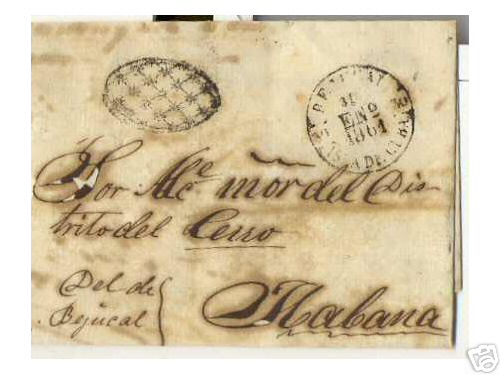 BEJUCAL
31
ENº
1861
DE CUBA
Sor Alc.e mõr del Dis-
trito del Cerro
Del de
Bejucal
Habana